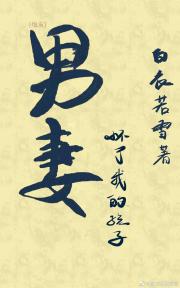 男妻
白衣若雪著
怀了我的孩子